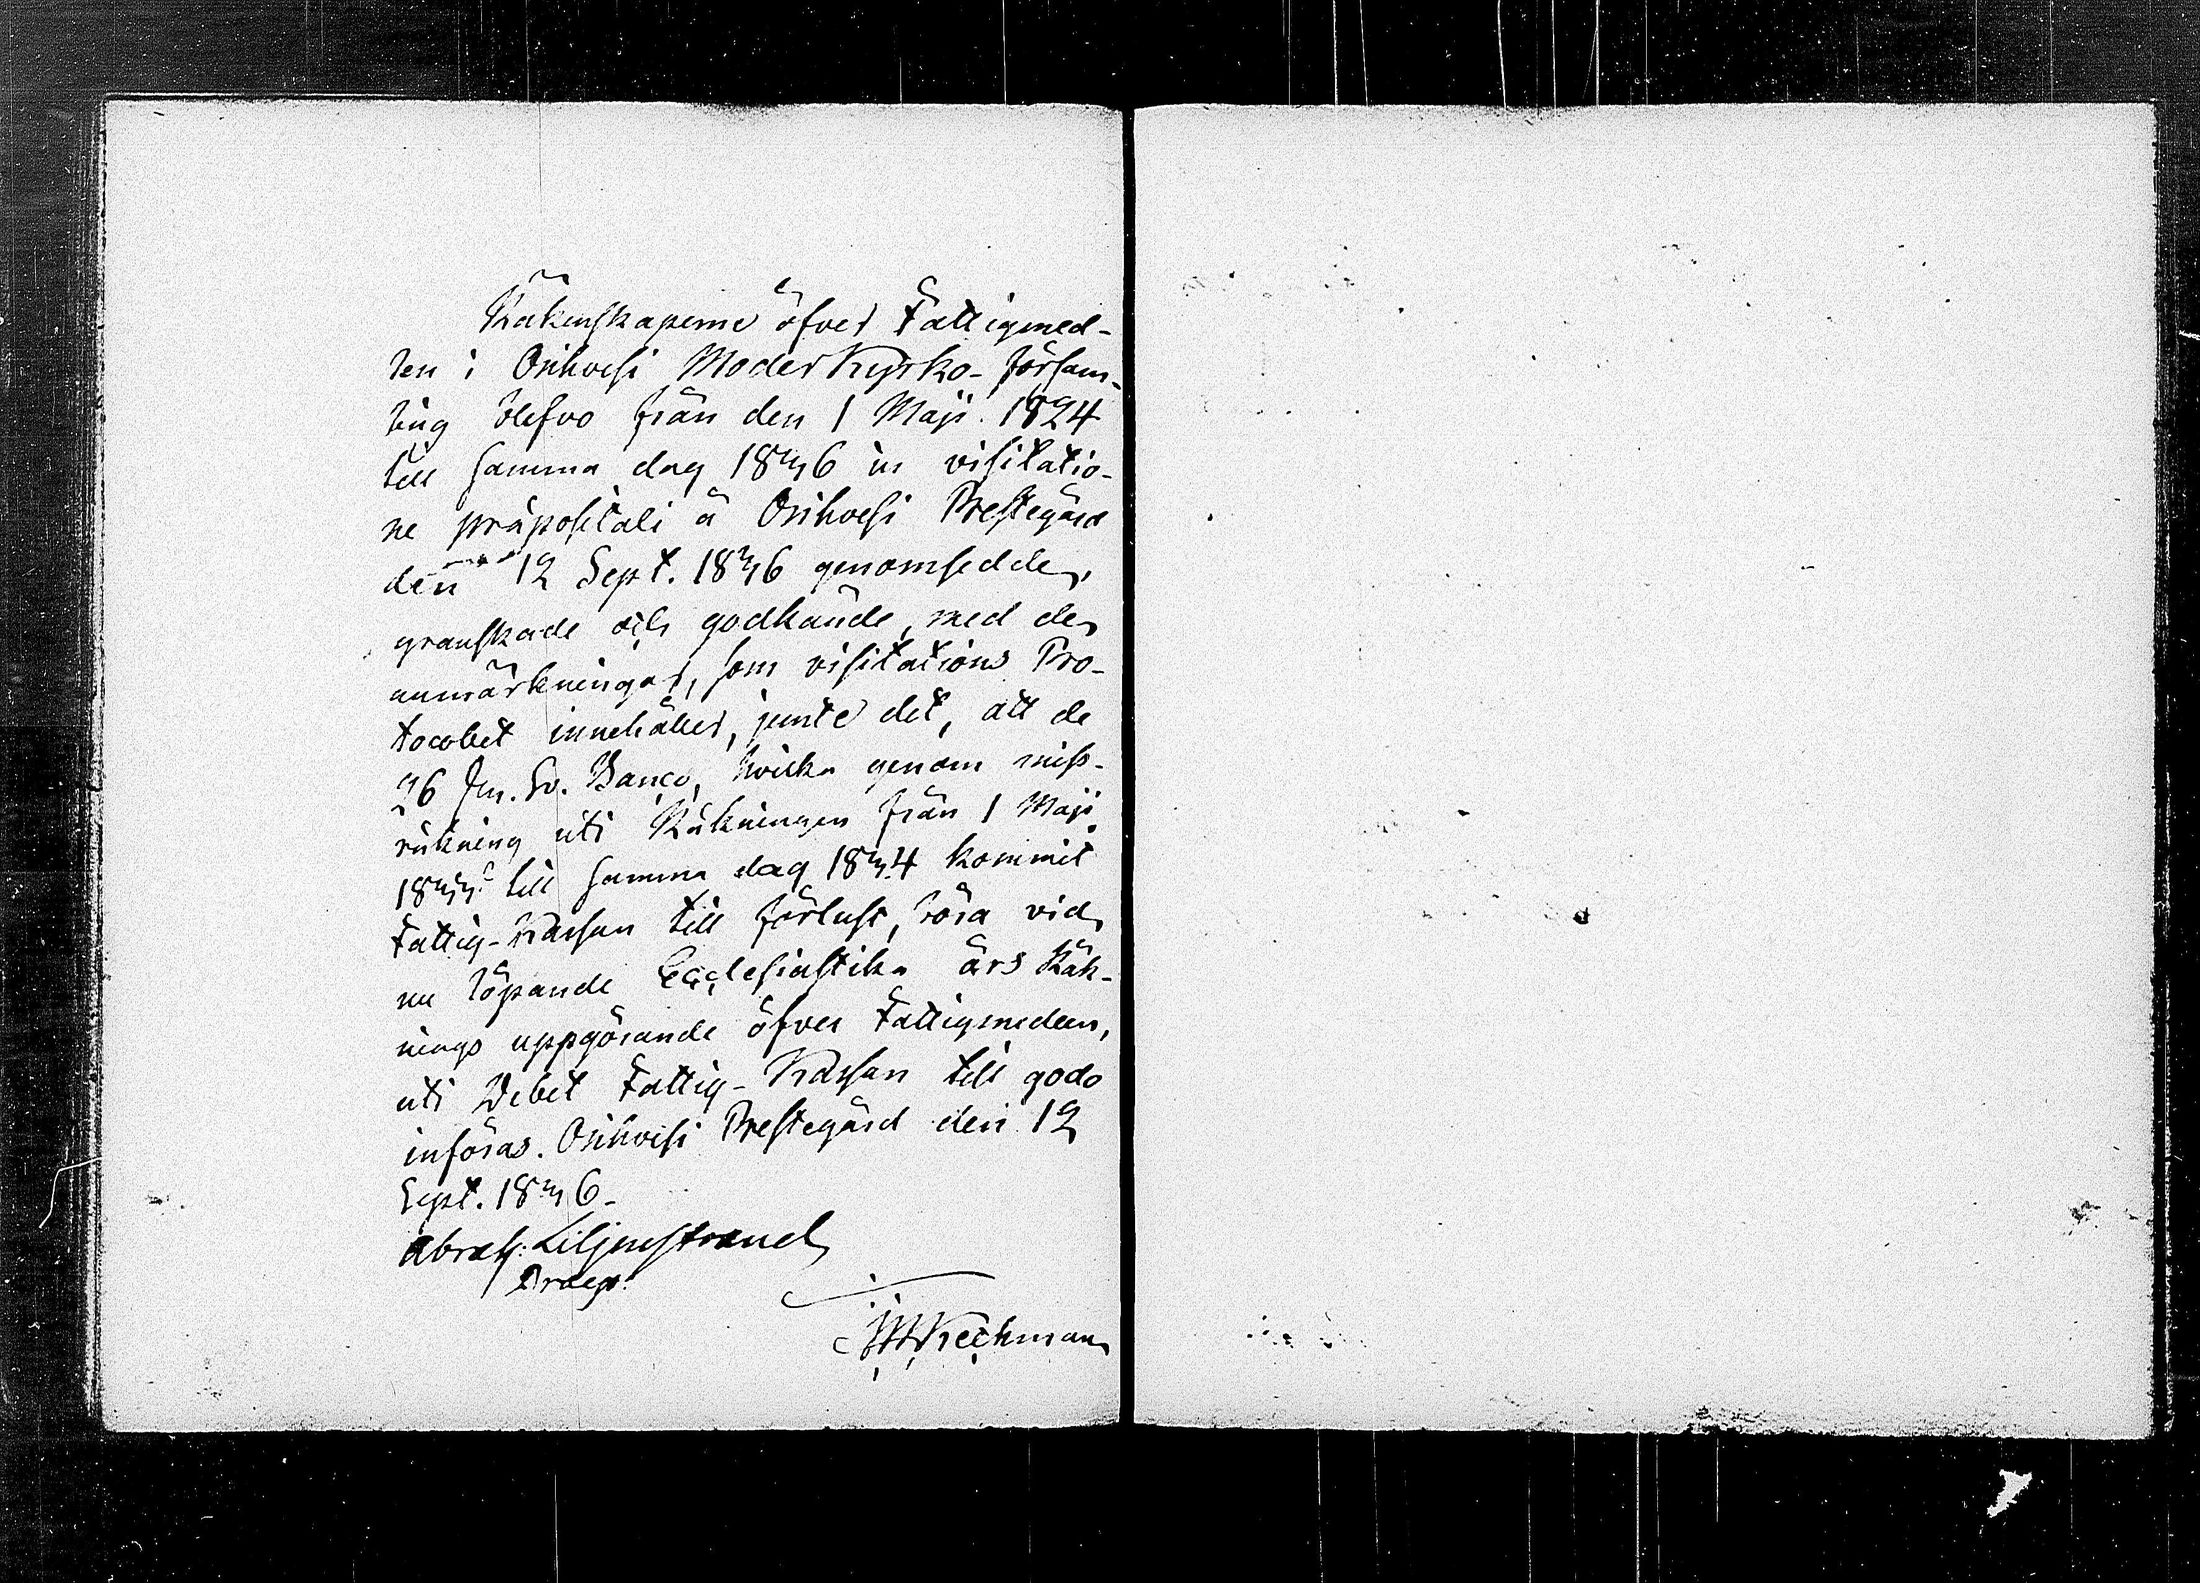 Räkenskaperne öfver Fattigmed-
len i Orihvesi Moder Kyrko-församl-
ling blefvo från den 1 Maji 1824
till samma dag 1836 in visitatio-
ne präpositali å Orihvesi Prestegård
den 12 Sept. 1836 genomsedde,
granskade och godkände, med de
anmärkningar, som visitations Pro-
tocollet innehåller, jemte det, att de
26 Sv. Banco, hvilka genom miss-
räkning uti Räkningen från 1 Maji
1833 till samma dag 1834 kommit
Fattig-Kassan till förlust, böra vid
nu löpande Ecclesiastika års Räk-
nings uppgörande öfver Fattigmedlen,
uti Debet Fattig-Kassan till godo
införas. Orihvesi Prestegård den 12
Sept. 1836.
Abrah: Liljenstrand
Praep.
Keckman